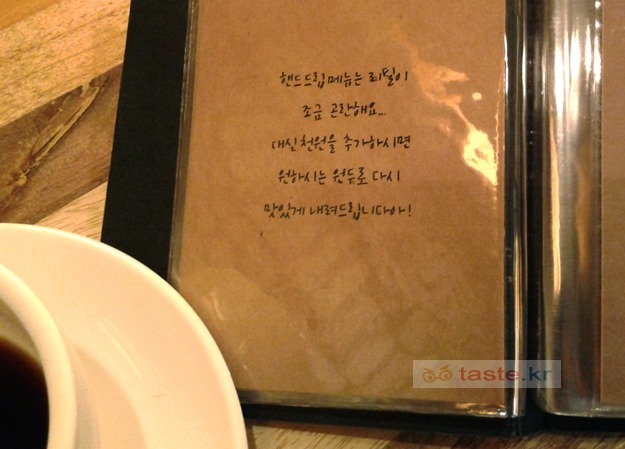 핸드드립 메뉴는 리필이
조금 곤란해요...
대신 천원을 추가하시면
원하시는 원두로 다시
맛있게 내려드립니다아!
taste.kr